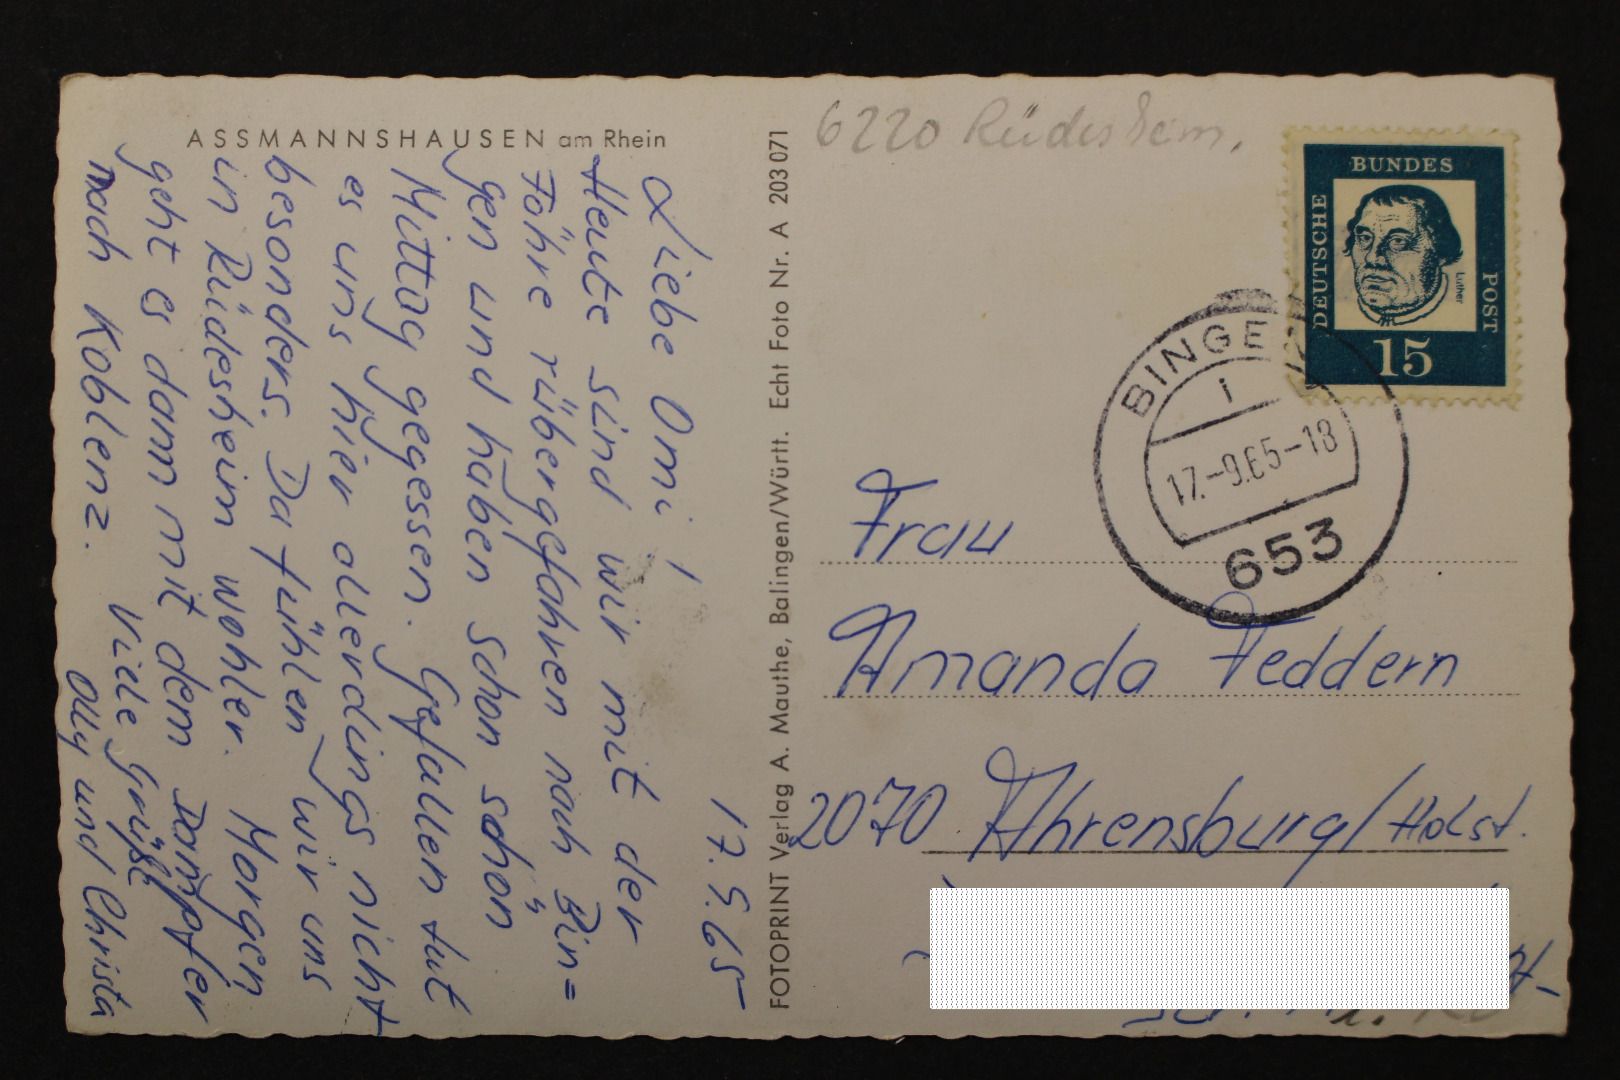 ASSMANNSHAUSEN am Rhein
17.9.65
Liebe Omi!
Heute sind wir mit der
Föhre rübergefahren nach Bin=
gen und haben schon schön
Mittag gegessen. Gefallen tut
es uns hier allerdings nicht
besonders. Da fühlen wir uns
in Rüdesheim wohler. Morgen
geht es dann mit dem Dampfer
nach Koblenz. Viele Grüße
Olly und Christa
FOTOPRINT Verlag A. Mauthe, Balingen/Württ. Echt Foto Nr. A 203 071
6220 Rüdesheim.
DEUTSCHE
BUNDES
POST
Luther
15
BINGE
1
17.-9.65-18
653
Frau
Amanda Feddern
2070 Ahrensburg/Holst.